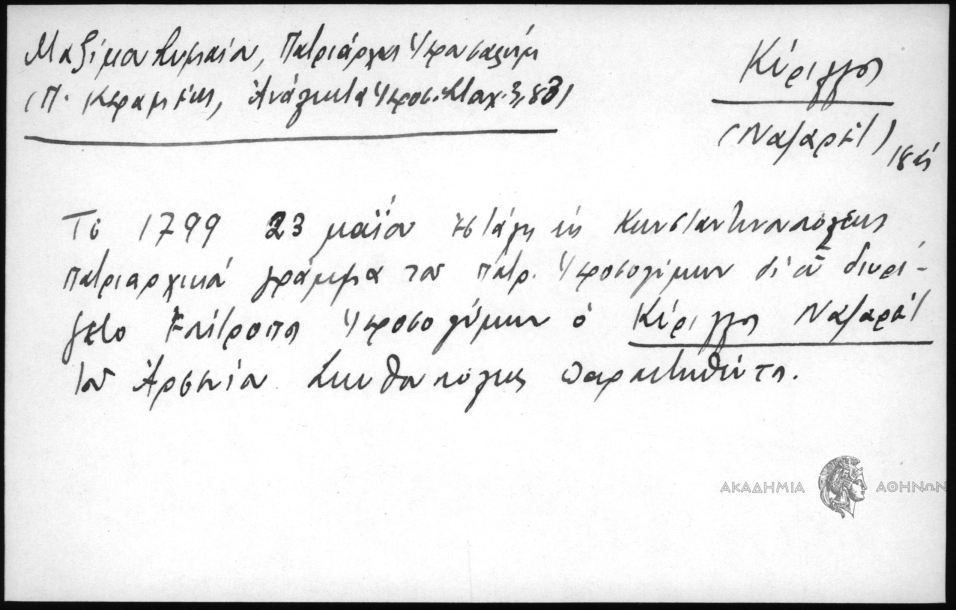 Μαξίμου Συμαίου, Πατριάρχης Ἱεροσολύμ
(Π. Κεραμεύς, Ἀνάλεκτα Ἱεροσ. Σταχ. 3, 83)
Κύριλλος
(Ναζαρέτ) 18ος
Τῷ 1799 23 μαΐου ἐστάλη ἐκ Κωνσταντινουπόλεως
πατριαρχικό γράμμα τοῦ Πατρ. Ἱεροσολύμων δι' οὗ διωρί-
ζετο Ἐπίτροπος Ἱεροσολύμων ὁ Κύριλλος Ναζαρέτ
τοῦ Ἀρσενίου Σκυθοπόλεως παραιτηθέντος.
ΑΚΑΔΗΜΙΑ ΑΘΗΝΩΝ